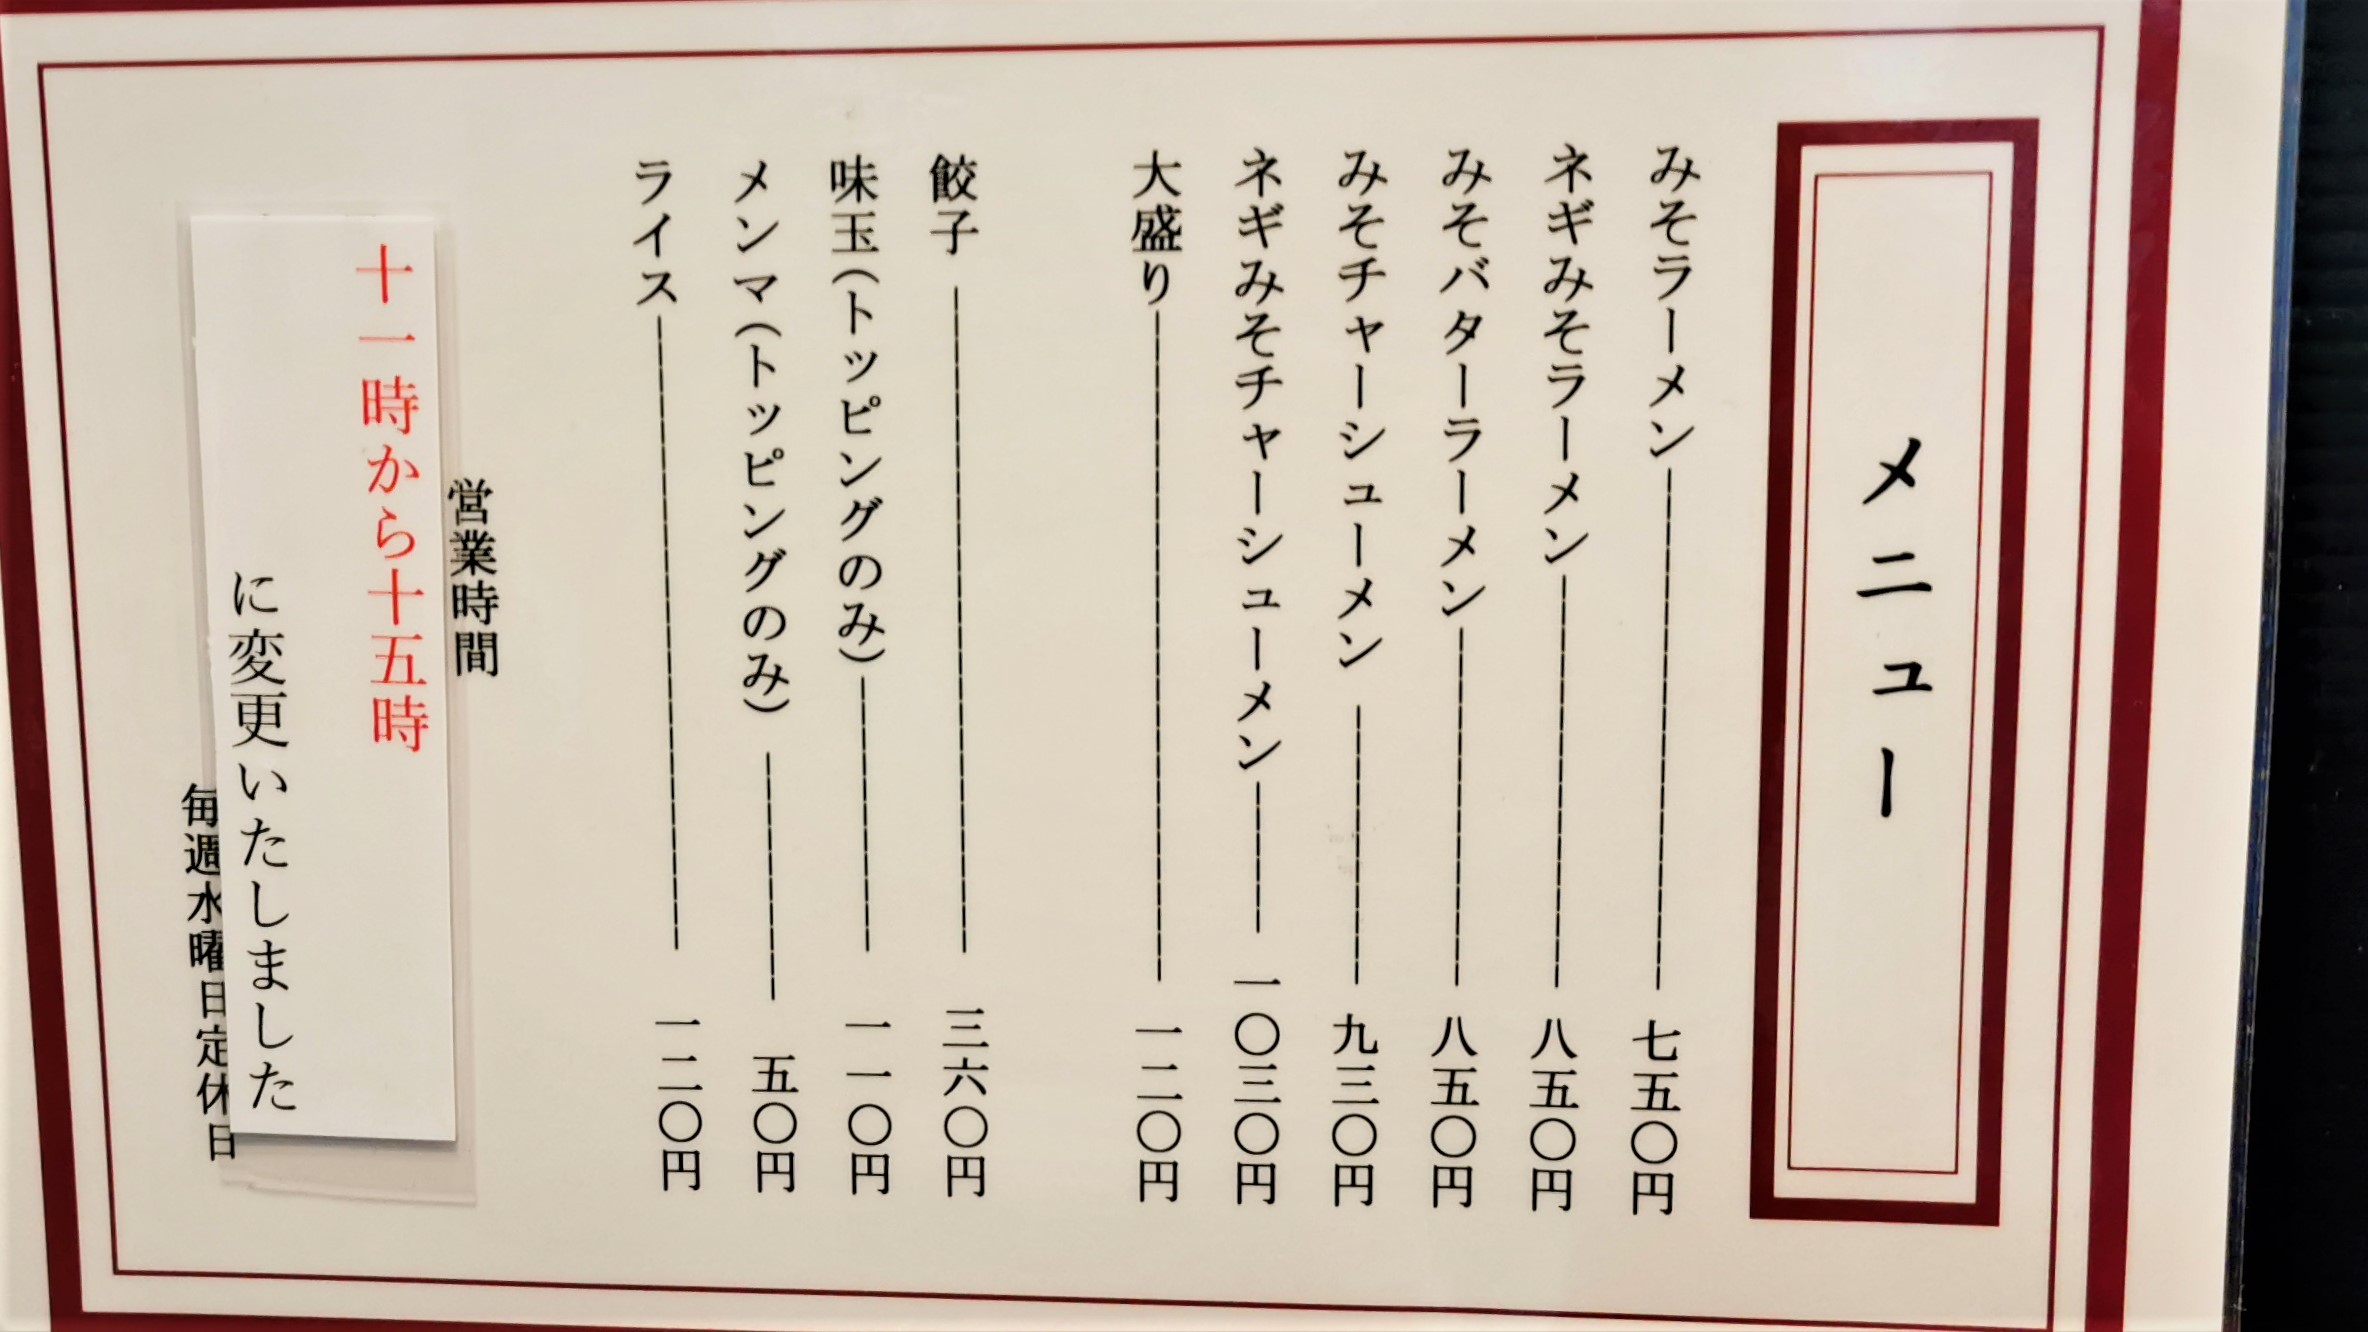 メニュー
みそラーメン 七五〇円
ネギみそラーメン 八五〇円
みそバターラーメン 八五〇円
みそチャーシューメン 九三〇円
ネギみそチャーシューメン 一〇三〇円
大盛り 一二〇円
餃子 三六〇円
味玉(トッピングのみ) 一一〇円
メンマ(トッピングのみ) 五〇円
ライス 一二〇円
営業時間
十一時から十五時
に変更いたしました
毎週水曜日定休日